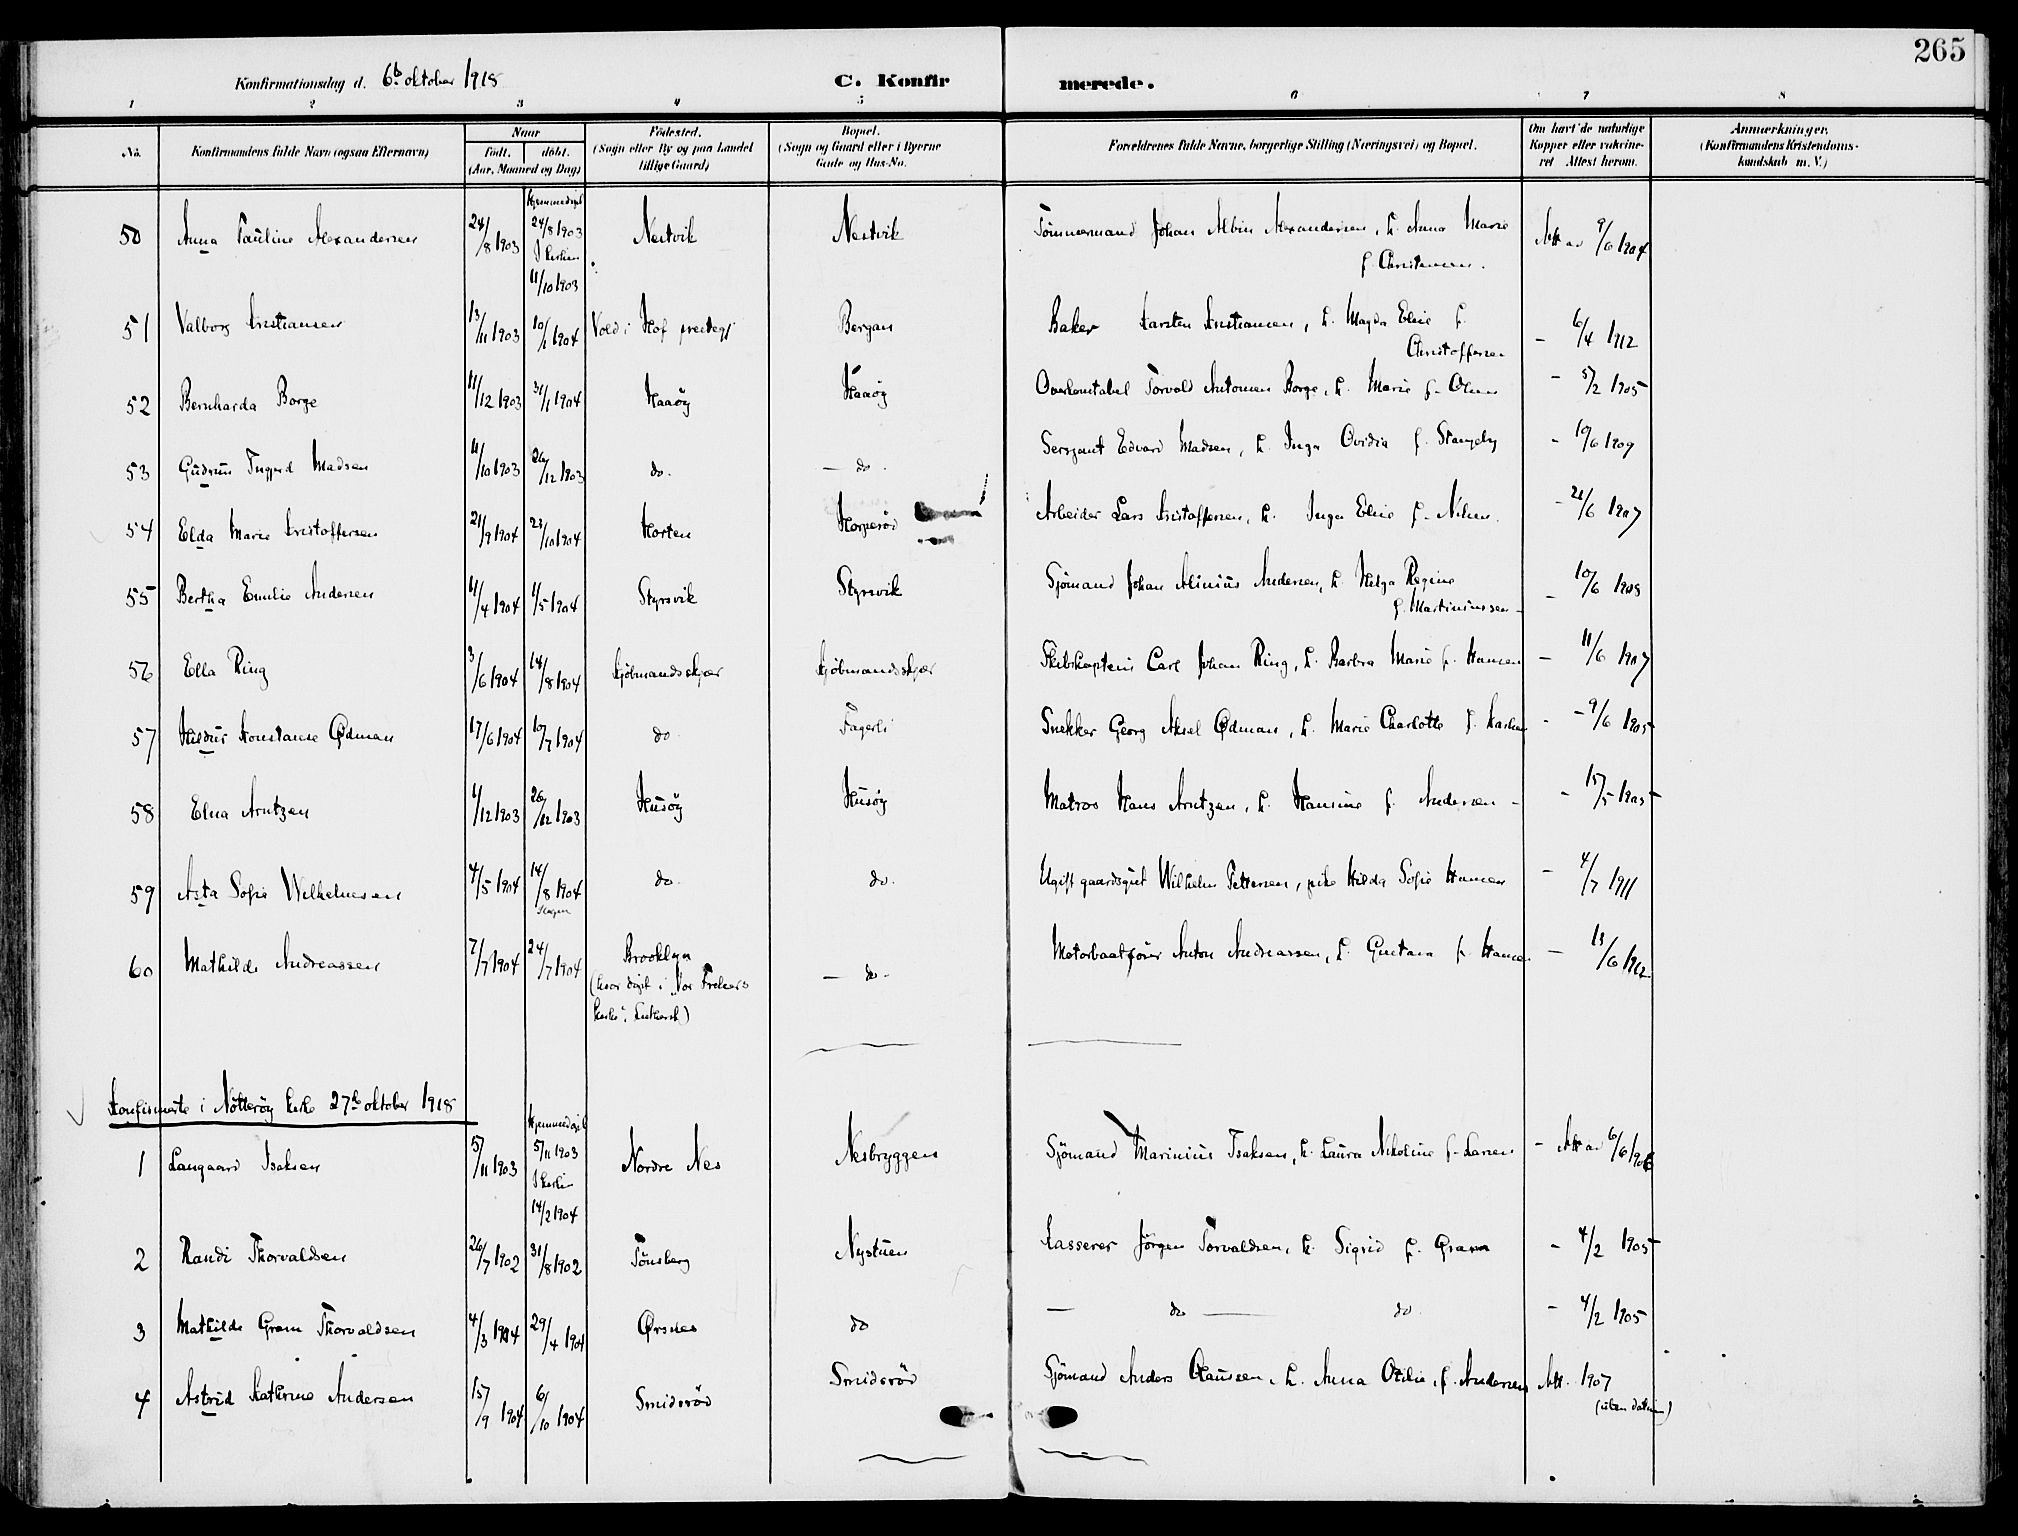 265
Konfirmationsdag d. 6te oktober 1918 C. Konfirmerede.
1 2 3 4 5 6 7 8
No. Konfirmandens fulde Navn (ogsaa Efternavn) Naar født. døbt. (Aar, Maaned og Dag) Fødested. (Sogn eller By og paa Landet tillige Gaard) Bopæl. (Sogn og Gaard eller i Byerne Gade og Hus-No. Forældrenes fulde Navne, borgerlige Stilling (Næringsvei) og Bopæl. Om havt de naturlige Kopper eller vaksineret Attest herom. Anmærkninger. (Konfirmandens Kristendomskundskab m. V.)
50 Anna Pauline Alexandersen 24/8 1903 Hjemmedøpt 24/8 1903 I kirken 11/10 1903 Nestvik Nestvik Tömmermand Johan Albin Alexandersen, h. Anna Marie f. Christensen. Att av 9/6 1904
51 Valborg Kristiansen 13/11 1903 10/1 1904 Vold i Hof prestegj Bergan Baker Karsten Kristiansen, h. Magda Elise f. Christoffersen - 6/4 1912
52 Bernharda Borge 11/12 1903 31/1 1904 Haaöy Haaöy Overkonstabel Torvald Antonsen Borge, h. Marie f. Olsen - 5/2 1905
53 Gudrun Ingjerd Madsen 11/10 1903 26/12 1903 do. - do. Sersjant Edvard Madsen, h. Inga Ovidia f. Stangeby - 10/6 1909
54 Elda Marie Kristoffersen 21/9 1904 23/10 1904 Horten Horperöd Arbeider Lars Kristoffersen, h. Inga Elise f. Nilsen. - 21/6 1907
55 Bertha Emilie Andersen 4/4 1904 1/5 1904 Styrsvik Styrsvik Sjömand Johan Alinius Andersen, h. Helga Regine f. Martiniussen - - 10/6 1908
56 Ella Ring 3/6 1904 14/8 1904 Kjöbmandsskjær Kjöbmandsskjær Skibskaptein Carl Johan Ring, h. Barbra Marie f. Hansen - 11/6 1907
57 Hildur Konstanse Ødman 17/6 1904 10/7 1904 do Fagerli Snekker Georg Aksel Ødman, h. Marie Charlotte f. Karlsen - 9/6 1905
58 Elna Arntzen 1/12 1903 26/12 1903 Husöy Husöy Matros Hans Arntzen, h. Hansine f. Andersen - - 15/5 1905
59 Asta Sofie Wilhelmsen 4/5 1904 14/8 1904 do. do. Ugift gaardsgut Wilhelm Pettersen, pike Hilda Sofie Hansen - 4/7 1911
60 Mathilde Andreassen 7/7 1904 24/7 1904 Brooklyn (hvor døpt i "Vor Frelsers kirke", Luthersk) - do - Motorbaatförer Anton Andreassen, h. Gustava f. Hansen - 13/6 1912
Konfirmerte i Nötteröy kirke 27de oktober 1918
1 Laugaard Isaksen 5/11 1903 Hjemmedøpt 5/11 1903 I kirken 14/2 1904 Nordre Nes Nesbryggen Sjömand Marinius Isaksen, h. Laura Nikoline f. Larsen - Att av 6/6 1906
2 Randi Thorvaldsen 26/7 1902 31/8 1902 Tönsberg Nystuen Kasserer Jörgen Torvaldsen, h. Sigrid f. Gram - 4/2 1905
3 Mathilde Gram Thorvaldsen 4/3 1904 29/4 1904 Ørsnes do - do - do - 4/2 1905
4 Astrid Kathrine Andersen 15/9 1904 6/10 1904 Smidsröd Smidsröd Sjömand Anders Clausen, h. Anna Otilie, f. Andersen Att. 1907 (uten datum)